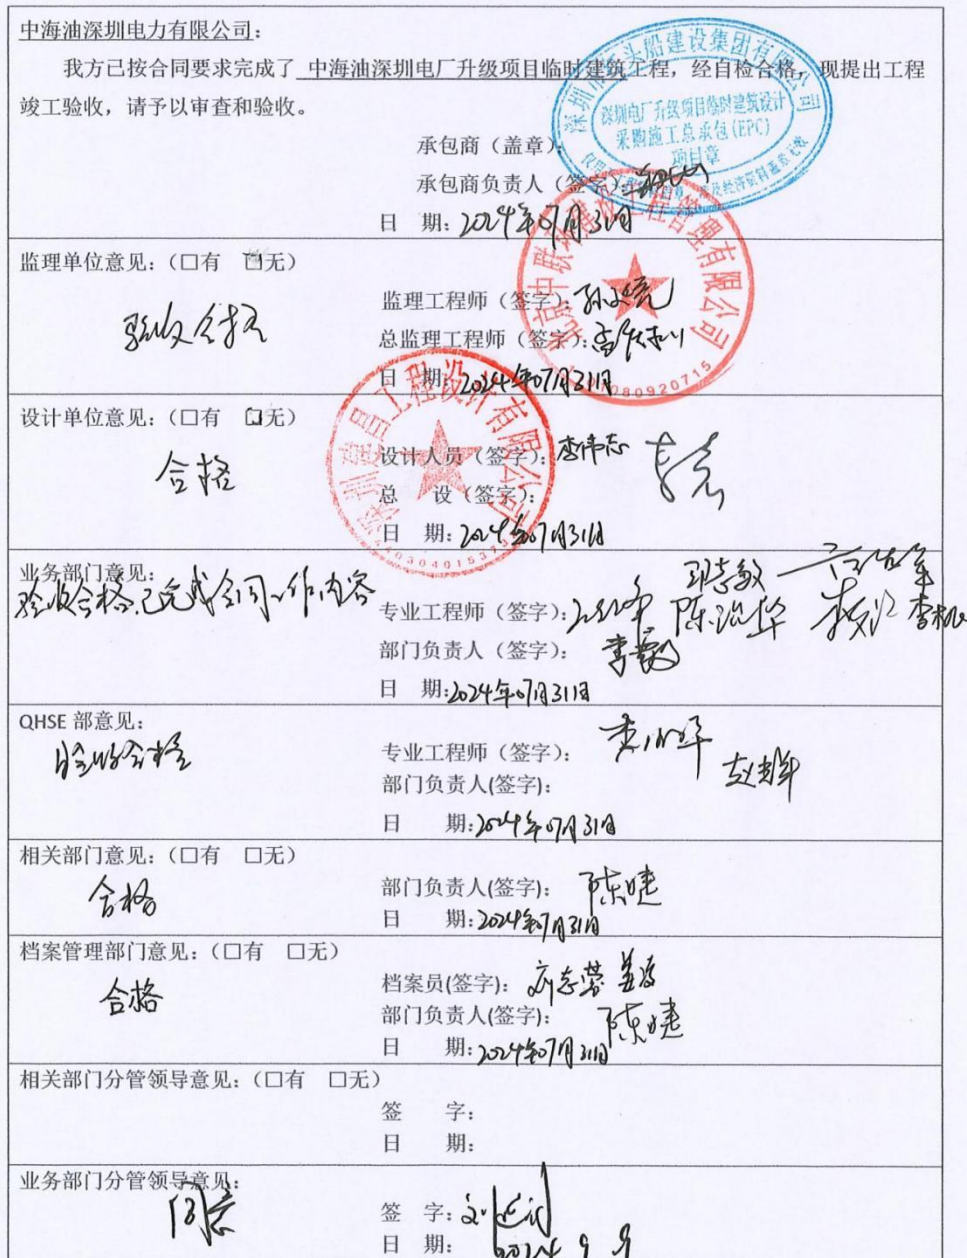 中海油深圳电力有限公司：
我方已按合同要求完成了 中海油深圳电厂升级项目临时建筑工程，经自检合格，现提出工程
竣工验收，请予以审查和验收。
深圳电厂升级项目临时建筑设计
采购施工总承包(EPC)
项目章
承包商（盖章）
承包商负责人（签字）：
日 期：2024年07月31日
监理单位意见：（□有 ☑无）
验收合格
监理工程师（签字）：
总监理工程师（签字）：
日 期：2024年07月31日
设计单位意见：（□有 ☑无）
合格
设计人员（签字）：李伟志
总 设（签字）：
日 期：2024年07月31日
业务部门意见：
验收合格，已完成合同工作内容
专业工程师（签字）：
部门负责人（签字）：
日 期：2024年07月31日
QHSE 部意见：
验收合格
专业工程师（签字）：
部门负责人(签字)：
日 期：2024年07月31日
相关部门意见：（□有 □无）
合格
部门负责人(签字)：陈婕
日 期：2024年07月31日
档案管理部门意见：（□有 □无）
合格
档案员(签字)：
部门负责人(签字)：陈婕
日 期：2024年07月31日
相关部门分管领导意见：（□有 □无）
签 字：
日 期：
业务部门分管领导意见：
同意
签 字：
日 期：2024 9 9